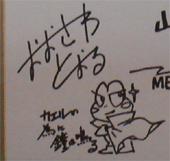 おおさわ
とおる
カエルの
為に
鐘は鳴る
山
ME